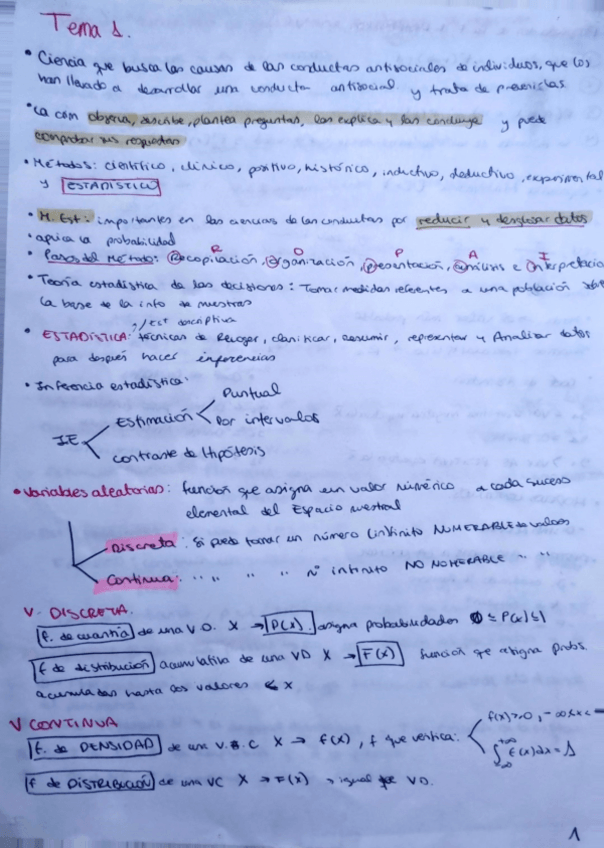 Tema 1.
• Ciencia que busca las causas de las conductas antisociales de individuos, que los
han llevado a desarrollar una conducta antisocial y trata de prevenirlas.
• La con observa, describe, plantea preguntas, las explica y las concluye y puede
comprobar sus respuestas
• Métodos: científico, clínico, positivo, histórico, inductivo, deductivo, experimental
y ESTADÍSTICO
• M. Est: importantes en las ciencias de las conductas por reducir y desglosar datos
• aplica la probabilidad
R O P A I
• Pasos del Método: Recopilación, Organización, presentación, análisis e Interpretación
• Teoría estadística de las decisiones: Tomar medidas referentes a una población sobre
la base de la info de muestras
descriptiva
• ESTADÍSTICA: técnicas de Recoger, clasificar, resumir, representar y Analizar datos
para después hacer inferencias
• Inferencia estadística:
Puntual
Estimación
Por intervalos
IE
contraste de Hipótesis
• Variables aleatorias: función que asigna un valor numérico a cada suceso
elemental del Espacio muestral
Discreta: si puede tomar un número (infinito NUMERABLE de valores
Continua: " " " " nº infinito NO NUMERABLE " "
V. DISCRETA.
f. de cuantía de una V.D. X → P(x). asigna probabilidades 0 ≤ P(x) ≤ 1
f. de distribución acumulativa de una VD X → F(x) función que asigna probs.
acumuladas hasta los valores ≤ x
V CONTINUA
f. de DENSIDAD de una V. C X → f(x), f que verifica:
f(x) ≥ 0, -∞ < x <
∫ f(x)dx = 1
f de DISTRIBUCIÓN de una VC X → F(x) → igual que VD.
1